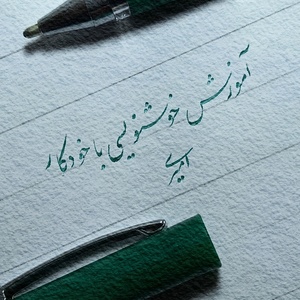 آموزش خوشنویسی با خودکار
امیری